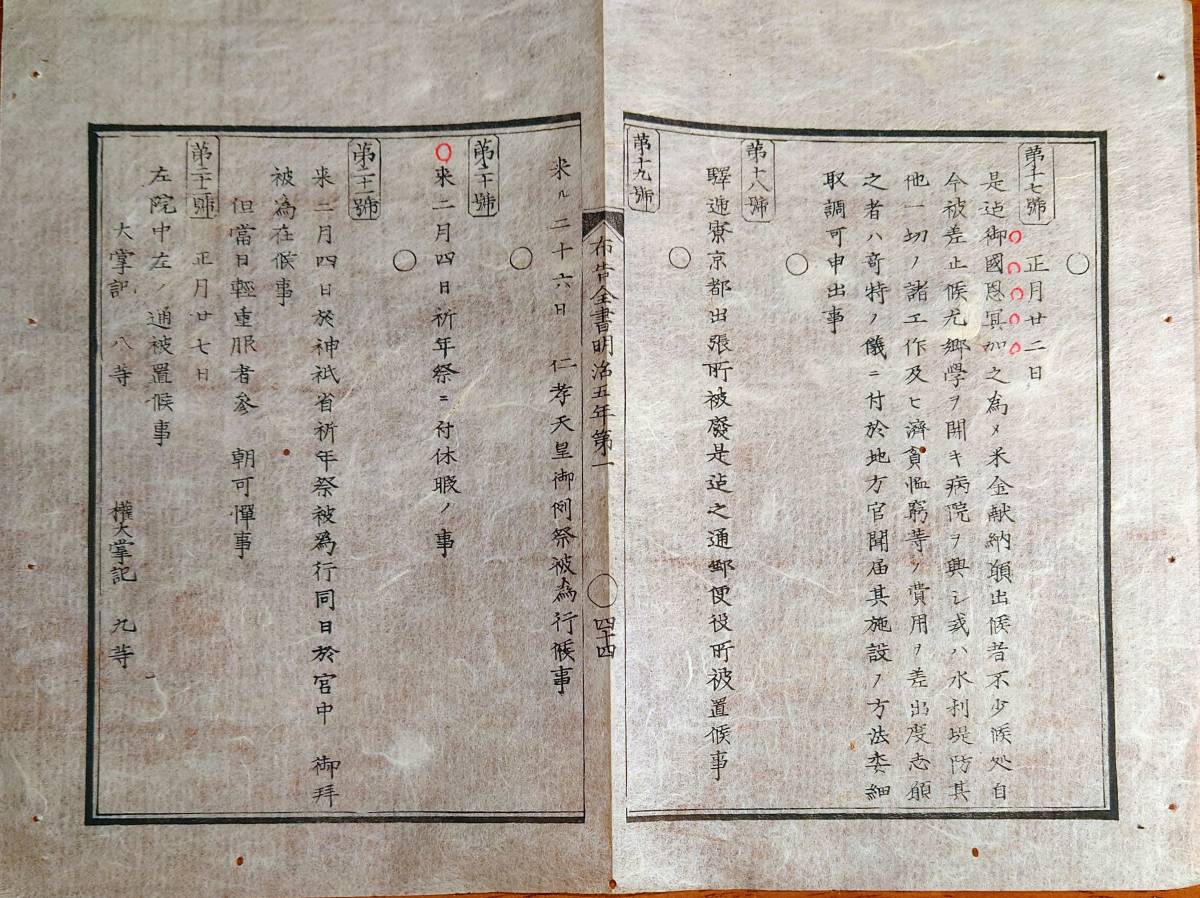 ○
第十七號　正月廿二日
是迠御國恩冥加之為メ米金献納願出候者不少候処自
今被差止候尤郷學ヲ開キ病院ヲ興シ或ハ水利堤防其
他一切ノ諸工作及ヒ濟貧恤窮等ノ費用ヲ差出度志願
之者ハ奇特ノ儀ニ付於地方官聞届其施設ノ方法委細
取調可申出事
○
第十八號
驛逓寮京都出張所被廢是迠之通郵便役所被置候事
○
第十九號
布告全書明治五年第一　○　四十四
来ル二十六日　仁孝天皇御例祭被為行候事
○
第二十號
来二月四日祈年祭ニ付休暇ノ事
○
第二十一號
来二月四日於神祇省祈年祭被為行同日於宮中　御拜
被為在候事
但當日輕重服者參　朝可憚事
第二十二號　正月廿七日
左院中左ノ通被置候事
大掌記　八等　權大掌記　九等